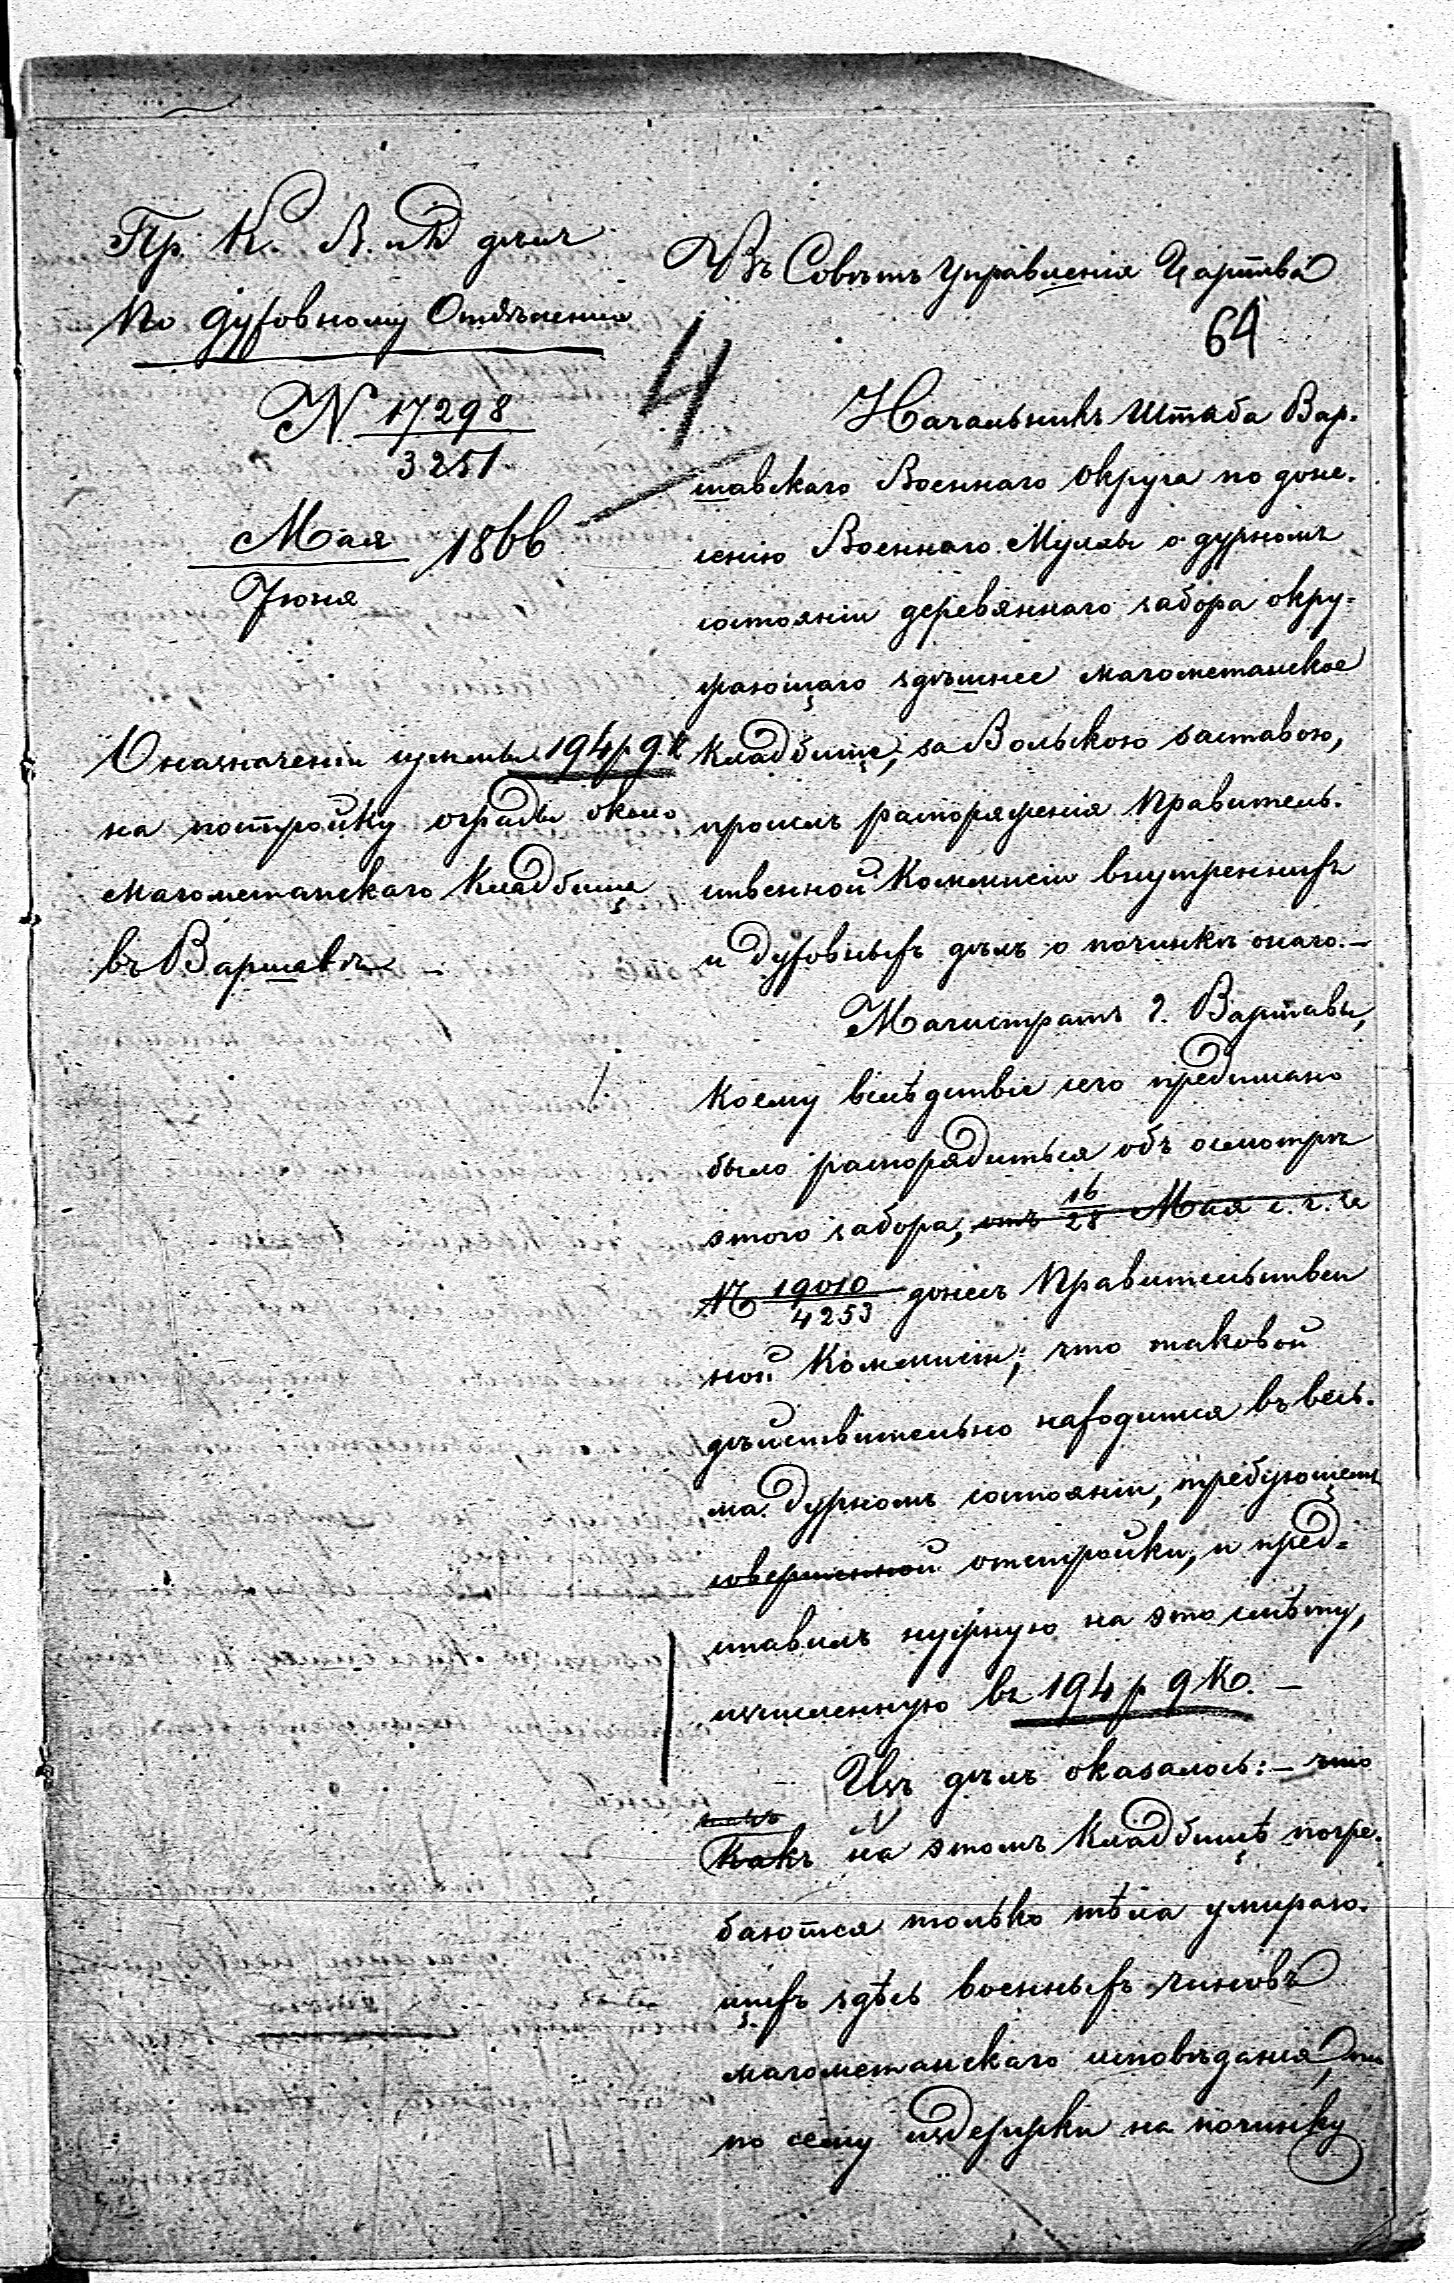 Пр. К. В. и Д дѣлъ
по духовному Отдѣленію
N 17298
3251
Мая 1866
Іюня
О назначеніи суммы 194 р 9. к
на постройку ограды около
магометанскаго кладбища
въ Варшавѣ –
Въ Совѣтъ Управленія Царства
64
4
Начальникъ Штаба Вар-
шавскаго Военнаго Округа по доне-
сенію Военнаго Муллы о дурномъ
состояніи деревяннаго забора окру-
жающаго здѣшнее магометанское
кладбище, за Вольскою заставою,
просилъ распоряженія Правитель-
ственной Коммисіи внутреннихъ
и духовныхъ дѣлъ о починкѣ онаго. –
Магистратъ г. Варшавы,
коему вслѣдствіе сего предписано
было распорядиться объ осмотрѣ
этого забора, отъ 16/28 Мая с. г. за
N 19010/4253 донесъ Правительствен
ной Коммисіи, что таковой
дѣйствительно находится въ весь-
ма дурномъ состояніи, требующемъ
совершенной отстройки, и пред-
ставилъ нужную на это смѣту,
исчисленную въ 194 р 9 ко. –
Изъ дѣлъ оказалось: – что
Какъ на этомъ кладбищѣ погре-
баются только тѣла умираю-
щихъ здѣсь военныхъ чиновъ
магометанскаго исповѣданія,
по сему издержки на починку